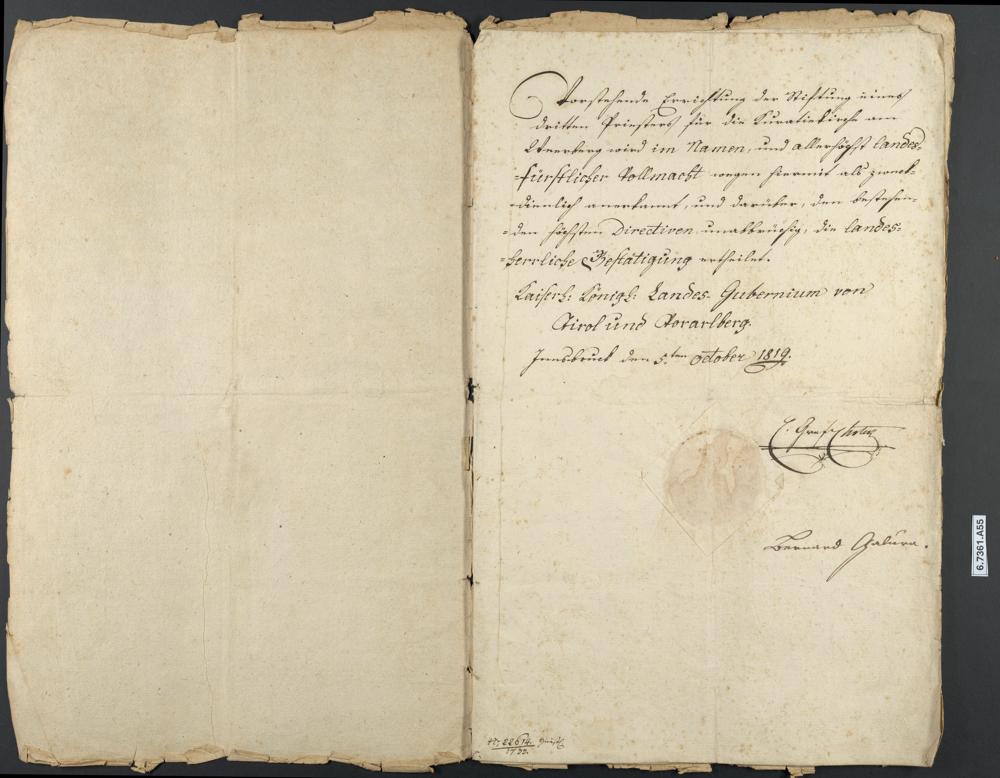 Vorstehende Errichtung der Stiftung eines
dritten Priesters für die Kuratiekirche am
wird im Namen, und allerhöchst landes-
=fürstlicher Vollmacht wegen hiermit als zweck=
=dienlich anerkannt, und darüber, den bestehen=
=den höchsten Directiven unabbrüchig, die landes=
=herrliche Bestätigung ertheilet.
Kaiserl: Königl: Landes-Gubernium von
Tirol und Vorarlberg.
Innsbruck den 5.ten October 1819.
C. Graf Chotek
Bernard Galura.
22614.
6.7361.A55